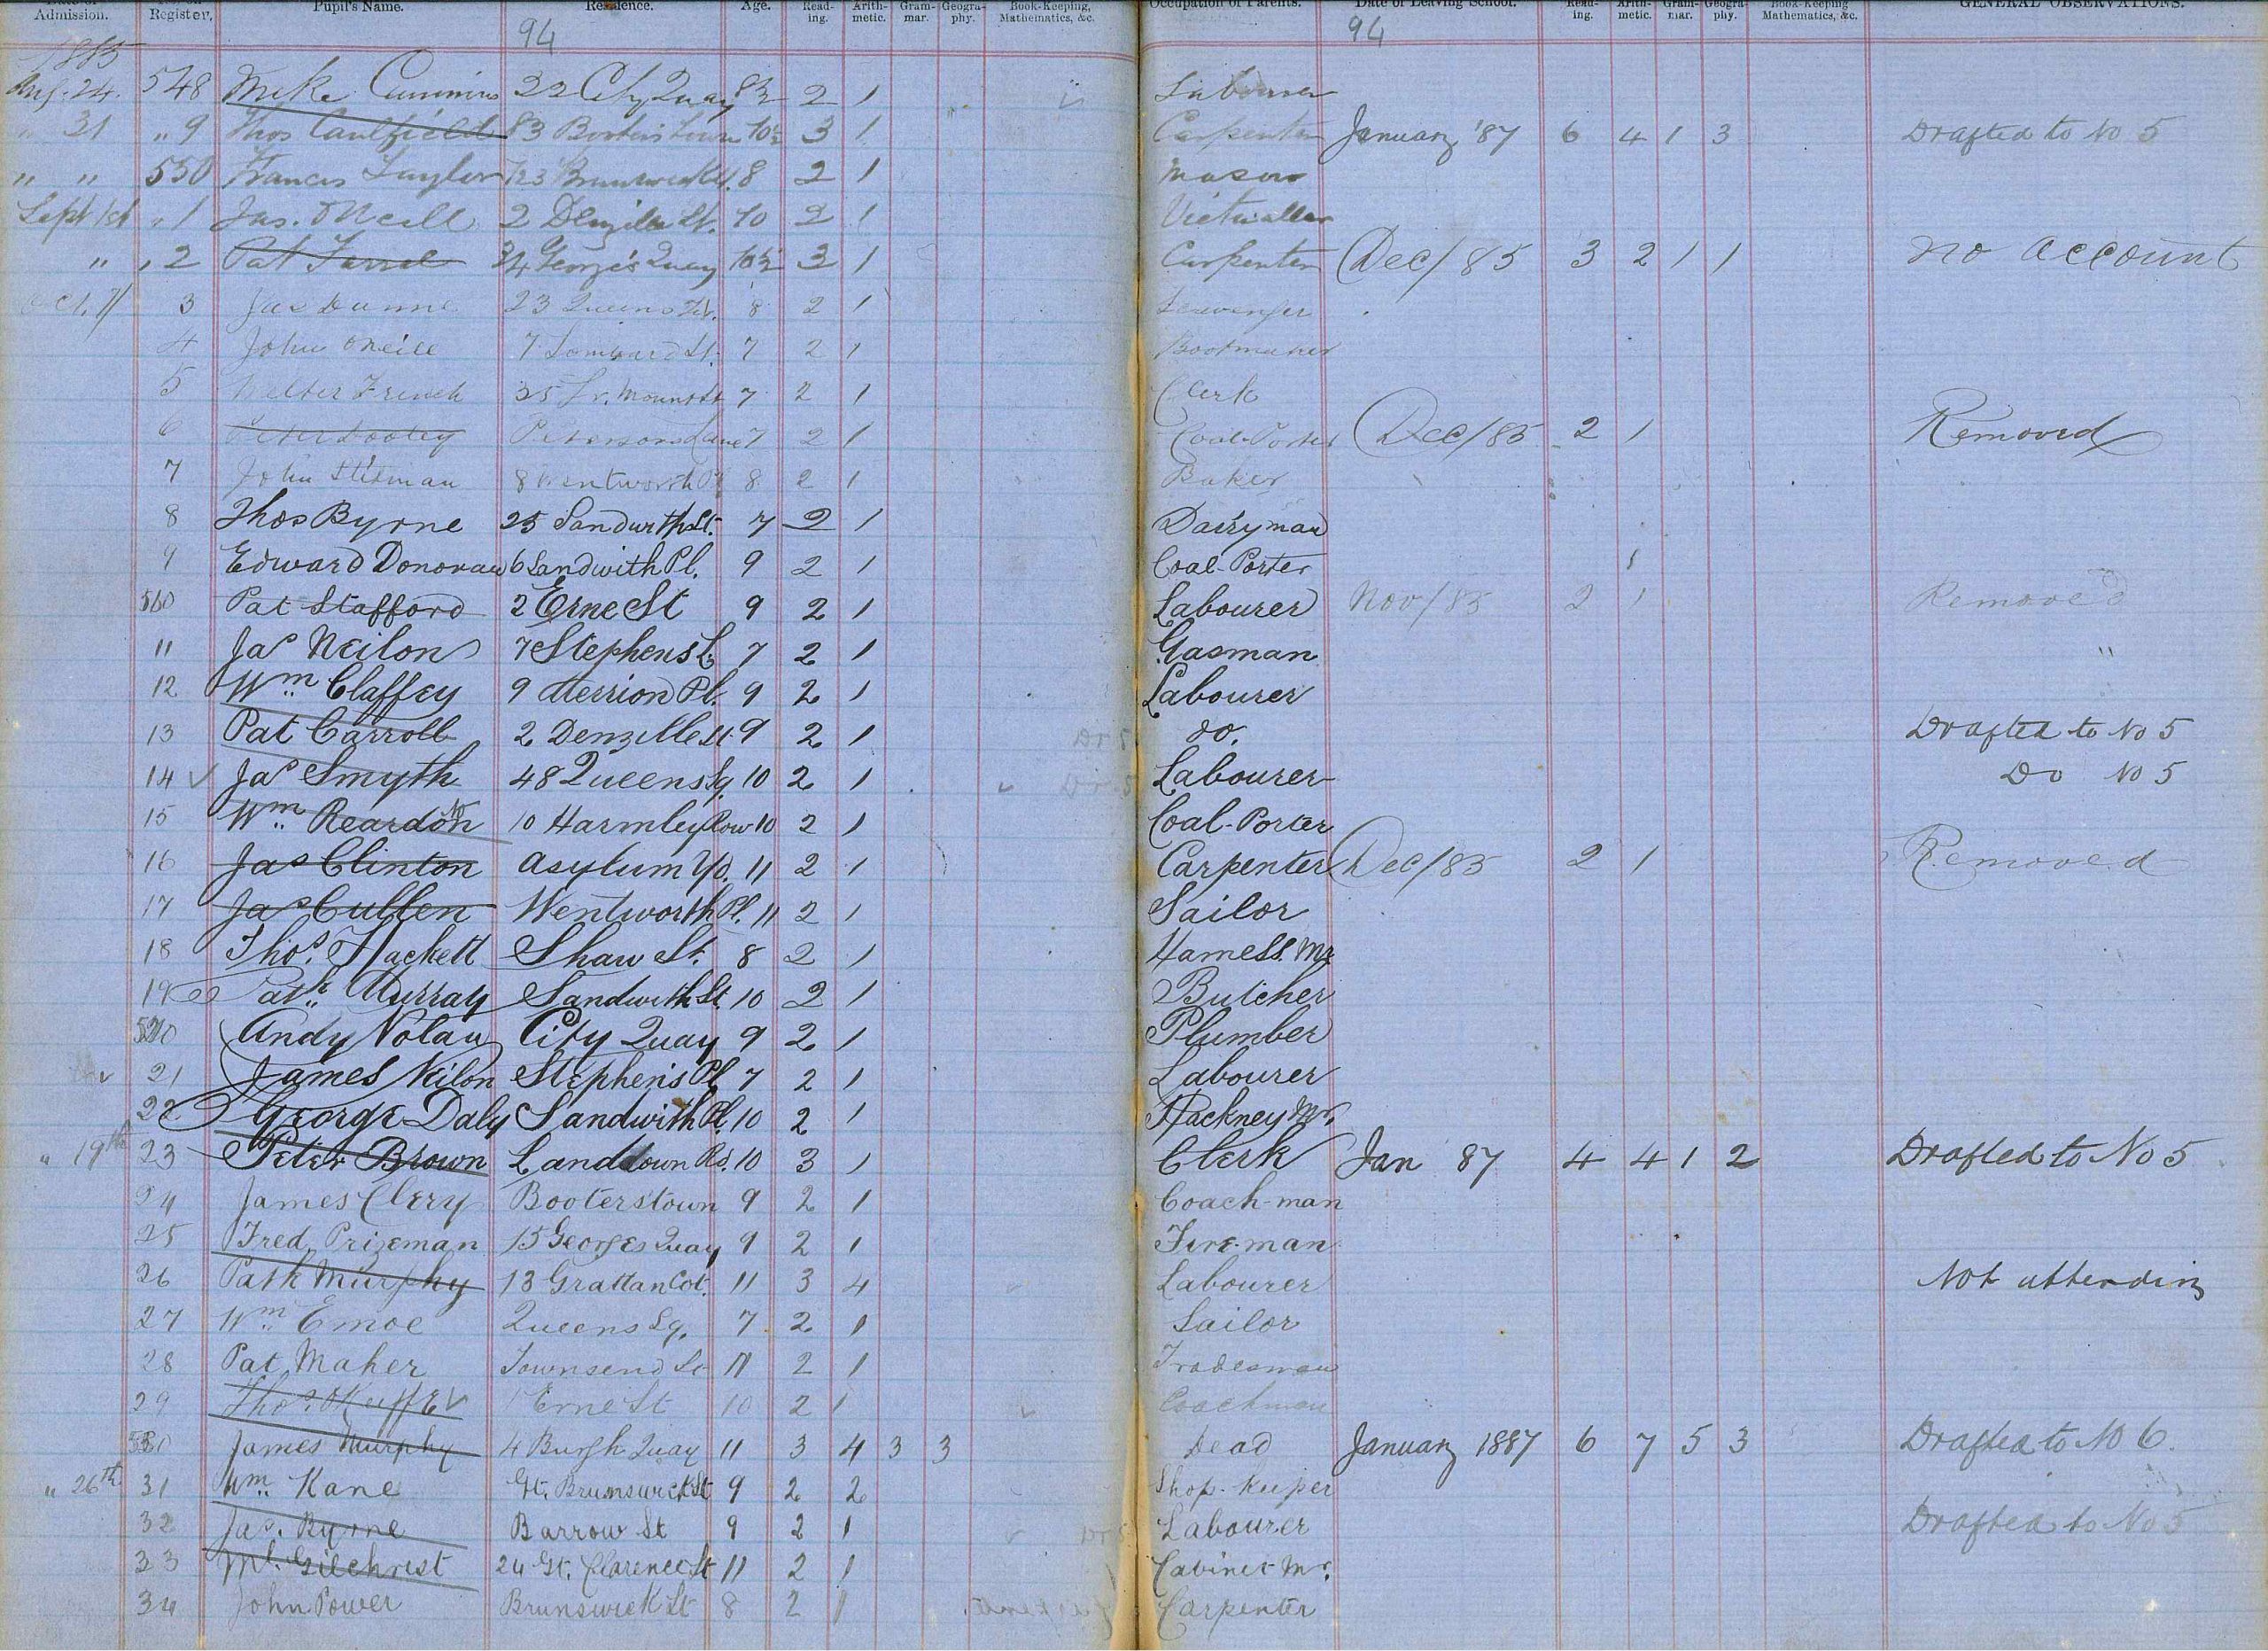 Admission. Register, Pupil's Name. Residence. Age. Read-ing. Arith-metic. Gram-mar. Geogra-phy. Book-Keeping, Mathematics, &c. Occupation of Parents. Date of Leaving School. Read-ing. Arith-metic. Gram-mar. Geogra-phy. Book-Keeping Mathematics, &c. GENERAL OBSERVATIONS.
94 94
1885
Aug. 24. 548 Mike Cummins 22 City Quay 8½ 2 1 Labourer
" 31 " 9 Thos Caulfield 83 Booterstown 10½ 3 1 Carpenter January '87 6 4 1 3 Drafted to No 5
" " 550 Francis Taylor 123 Brunswick St. 8 2 1 Mason
Sept 1st " 1 Jas. O'Neill 2 Denzille St. 10 2 1 Victualler
" " 2 Pat Farrel 24 George's Quay 10½ 3 1 Carpenter Dec/85 3 2 1 1 no account
Oct. 7/ 3 Jas Dunne 23 Queens Sq. 8 2 1 Scavenger
4 John O'Neill 7 Lombard St. 7 2 1 Bootmaker
5 Walter French 35 Lr. Mount St 7 2 1 Clerk
6 Peter Dooley Petersons Lane 7 2 1 Coal-Porter Dec/85 2 1 Removed
7 John 8 Wentworth Pl 8 2 1 Baker
8 Thos Byrne 25 Sandwith St. 7 2 1 Dairyman
9 Edward Donovan 6 Sandwith Pl. 9 2 1 Coal-Porter
560 Pat Stafford 2 Erne St 9 2 1 Labourer Nov/85 2 1 Removed
11 Jas Neilon 7 Stephens L. 7 2 1 Gasman "
12 Wm Claffey 9 Merrion Pl. 9 2 1 Labourer
13 Pat Carroll 2 Denzille St. 9 2 1 do. Drafted to No 5
14 ✓ Jas Smyth 48 Queens Sq. 10 2 1 Labourer Do No 5
15 Wm Reardon 10 Harmley Row 10 2 1 Coal-Porter
16 Jas Clinton Asylum Yd. 11 2 1 Carpenter Dec/85 2 1 Removed
17 Jas Cullen Wentworth Pl. 11 2 1 Sailor
18 Thos. Hackett Shaw St. 8 2 1 Harness Mr
19 Path Murray Sandwith St. 10 2 1 Butcher
Andy Nolan City Quay 9 2 1 Plumber
21 James Neilon Stephen's Pl 7 2 1 Labourer
22 George Daly Sandwith Pl. 10 2 1 Hackney Mr.
" 19th 23 Peter Brown Landsdown Rd. 10 3 1 Clerk Jan 87 4 4 1 2 Drafted to No 5
24 James Clery Booterstown 9 2 1 Coach-man
25 Fred Prizeman 15 Georges Quay 9 2 1 Fire-man
26 Path Murphy 13 Grattan Cot. 11 3 4 Labourer Not attending
27 Wm Emoe Queens Sq. 7 2 1 Sailor
28 Pat Maher Townsend St 11 2 1 Tradesman
29 Thos. OKeeffe ✓ 1 Erne St 10 2 1 Coachman
James Murphy 4 Burgh Quay 11 3 4 3 3 Dead January 1887 6 7 5 3 Drafted to No 6.
" 26th 31 Wm Kane Gt. Brunswick St 9 2 2 Shop-keeper
32 Jas. Byrne Barrow St 9 2 1 Labourer Drafted to No 5
33 Ml. Gilchrist 24 Gt. Clarence St 11 2 1 Cabinet Mr.
34 John Power Brunswick St 8 2 1 Carpenter